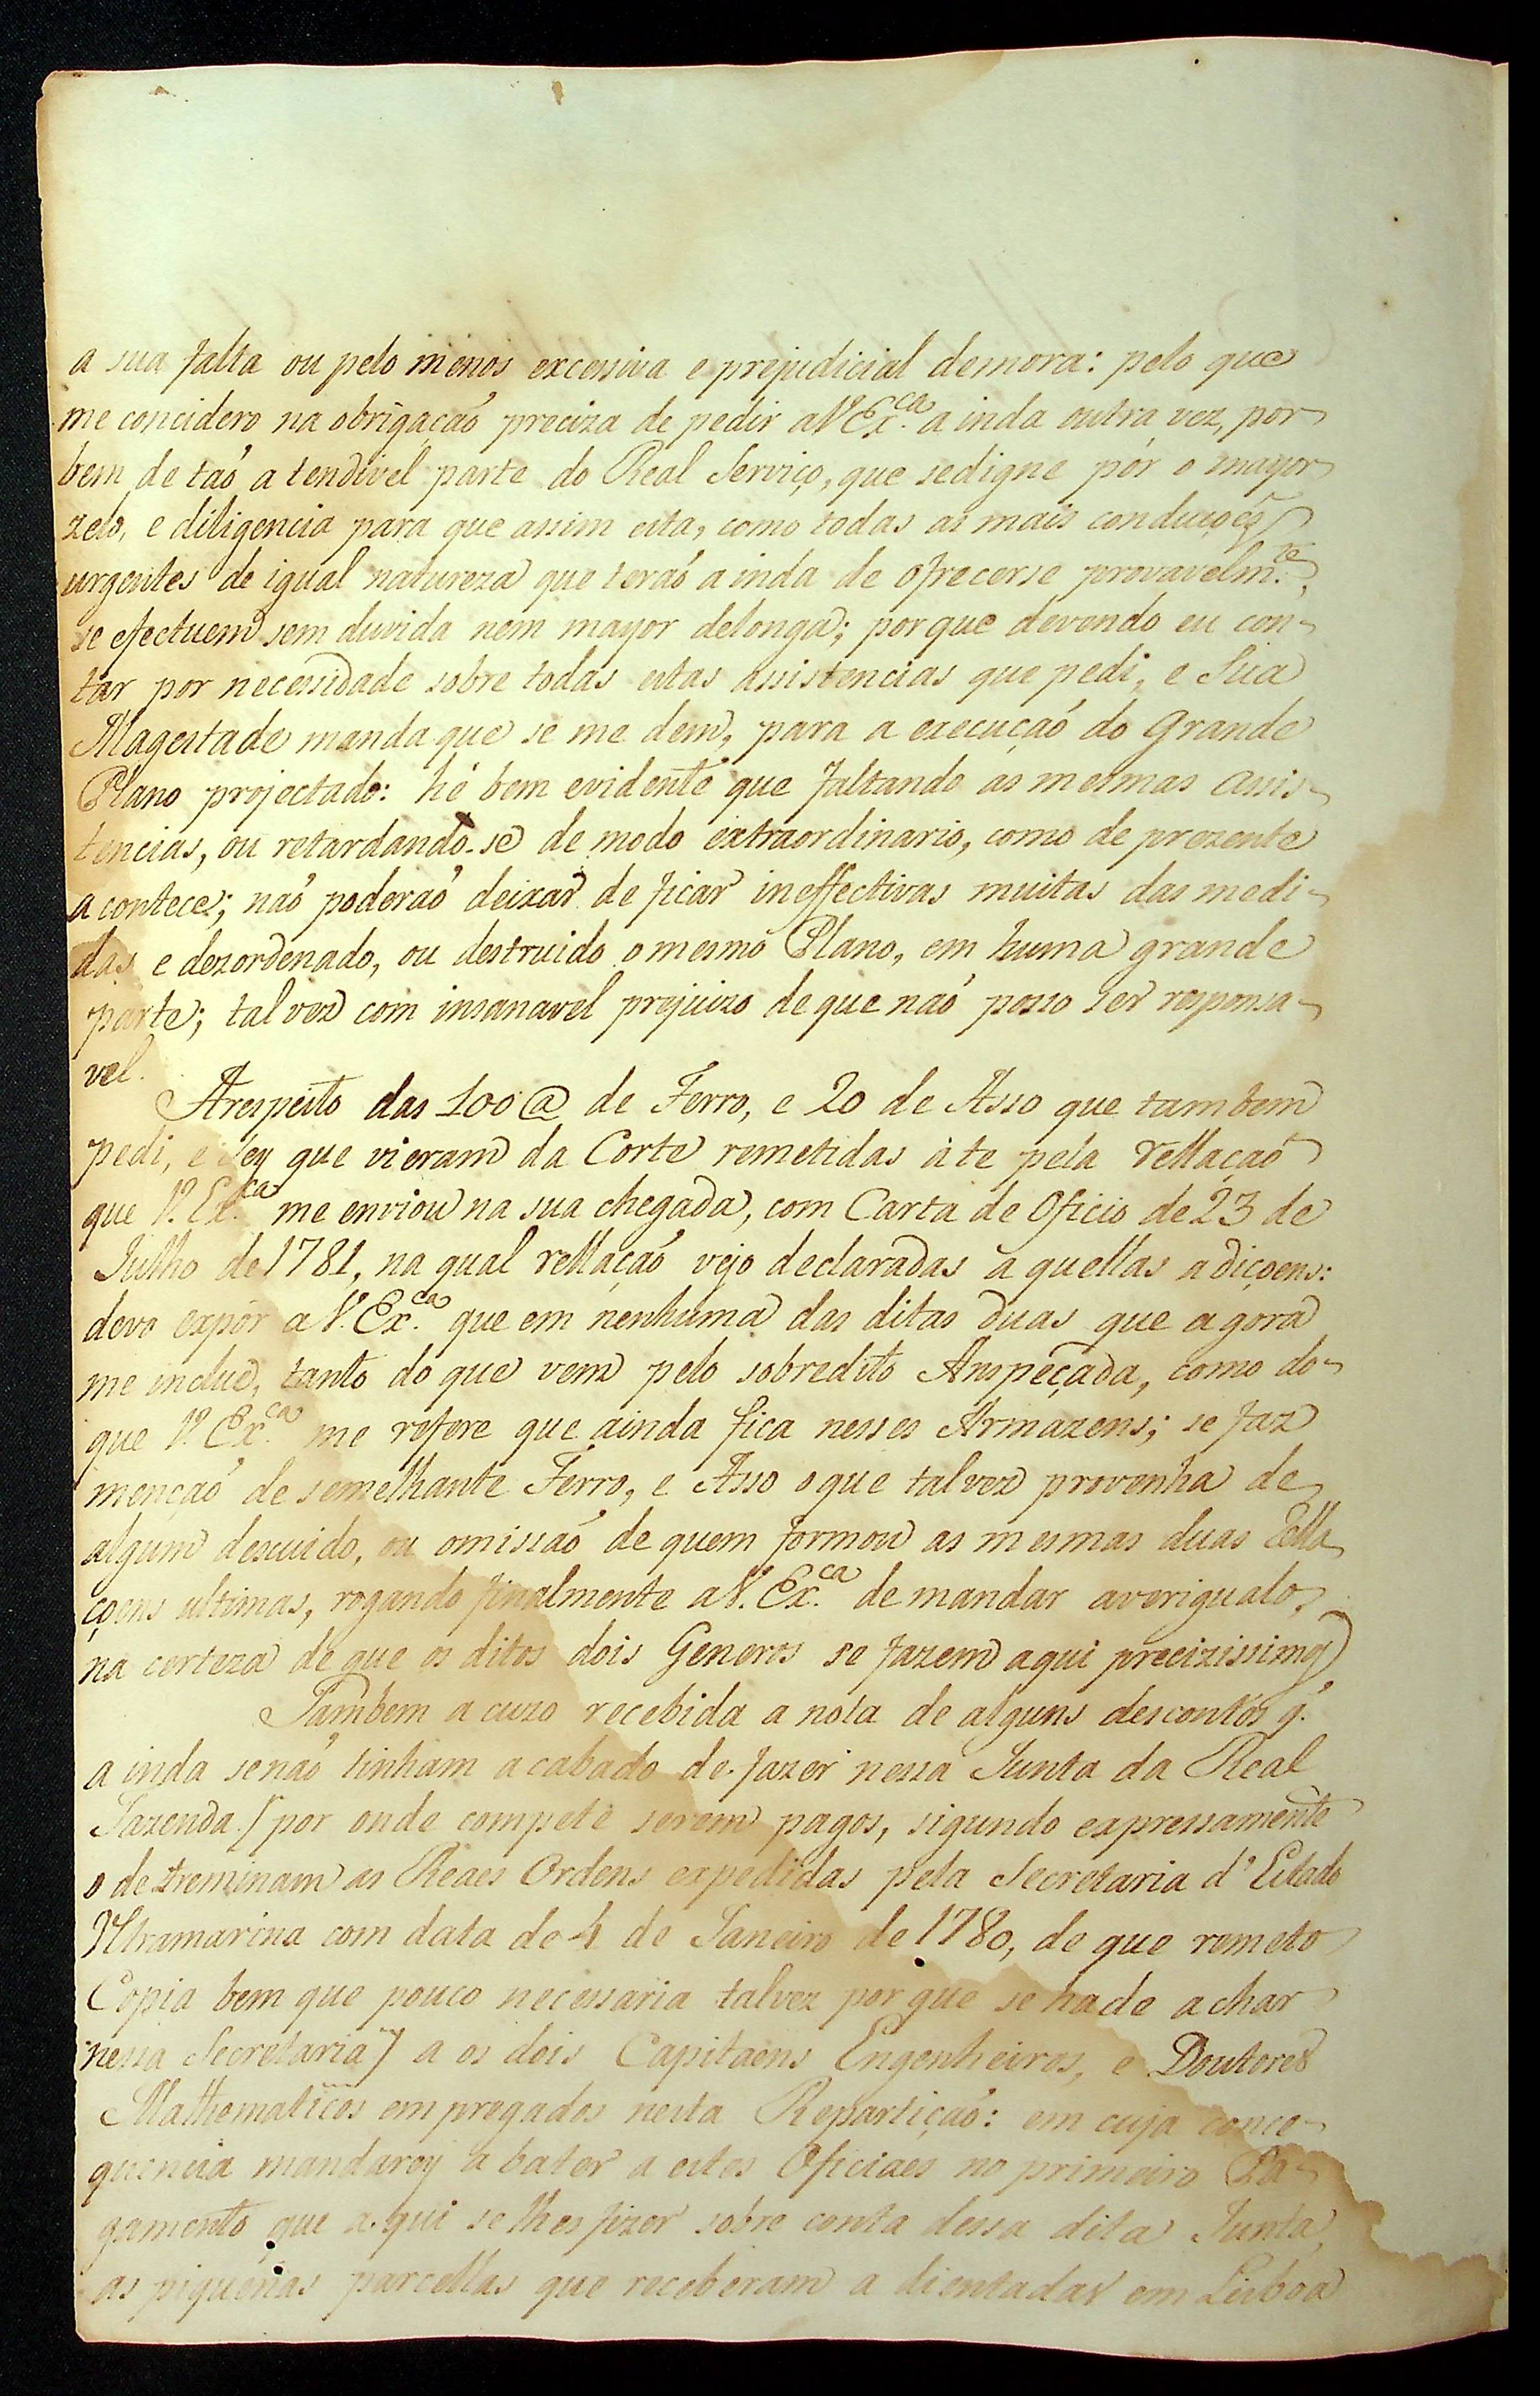 a sua falta ou pelo menos excessiva e prejudicial demora: pelo que
me concidero na obrigaçaõ preciza de pedir a V. Ex.ca a inda outra vez, por
bem de taõ a tendivel parte do Real Serviço, que sedigne pôr o mayor
zelo, e diligencia para que assim esta, como todas as mais conduçoẽs
urgentes de igual natureza que teraõ a inda de ofrecerse provavelm.te,
se efectuem sem duvida nem mayor delonga; por que devendo eu con-
tar por necessidade sobre todas estas assistencias que pedi, e Sua
Magestade manda que se me dem, para a execuçaõ do grande
Plano projectado: hé bem evidente que faltando as mesmas assis-
tencias, ou retardando-se de modo extraordinario, como de prezente
a contece; naõ poderaõ deixar de ficar ineffectivas muitas das medi-
das e dezordenado, ou destruido o mesmo Plano, em huma grande
parte; tal vez com insanavel prejuizo de que naõ posso ser responsa-
vel.
Arespeito das 100@ de Ferro, e 20 de Asso que tambem
pedi, e sey que vieram da Corte remetidas áte pela rellaçaõ
que V. Ex.ca me enviou na sua chegada, com Carta de Oficio de 23 de
Julho de 1781, na qual rellaçaõ vejo declaradas a quellas adiçoens:
devo expôr a V. Ex.ca que em nenhuma das ditas duas que agora
me inclue, tanto do que vem pelo sobredito Anspeçada, como do-
que V. Ex.ca me refere que ainda fica nesses Armazens; se faz
mençaõ de semelhante Ferro, e Asso o que talvez provenha de
algum descuido, ou omissaõ de quem formou as mesmas duas Rella
çoens ultimas, rogando finalmente a V. Ex.ca de mandar averigualo,
na certeza de que os ditos dois Generos se fazem aqui precizissimos
Tambem a cuzo recebida a nota de alguns descontos q.
a inda senaõ tinham a cabado de fazer nessa Junta da Real
Fazenda [por onde compete serem pagos, sigundo expressamente
o detreminam as Reaes Ordens expedidas pela Secretaria d'Estado
Vltramarina com data de 4 de Janeiro de 1780, de que remeto
Copia bem que pouco necessaria talvez por que se hade achar
nessa Secretaria] a os dois Capitaens Engenheiros, e Doutores
Mathematicos empregados nesta Repartiçaõ: em cuja conce-
quencia mandarey a bater a estes Oficiaes no primeiro Pa-
gamento que a qui se lhes fizer sobre conta dessa dita Junta,
as piquenas parcellas que receberam a dientadas em Lisboa